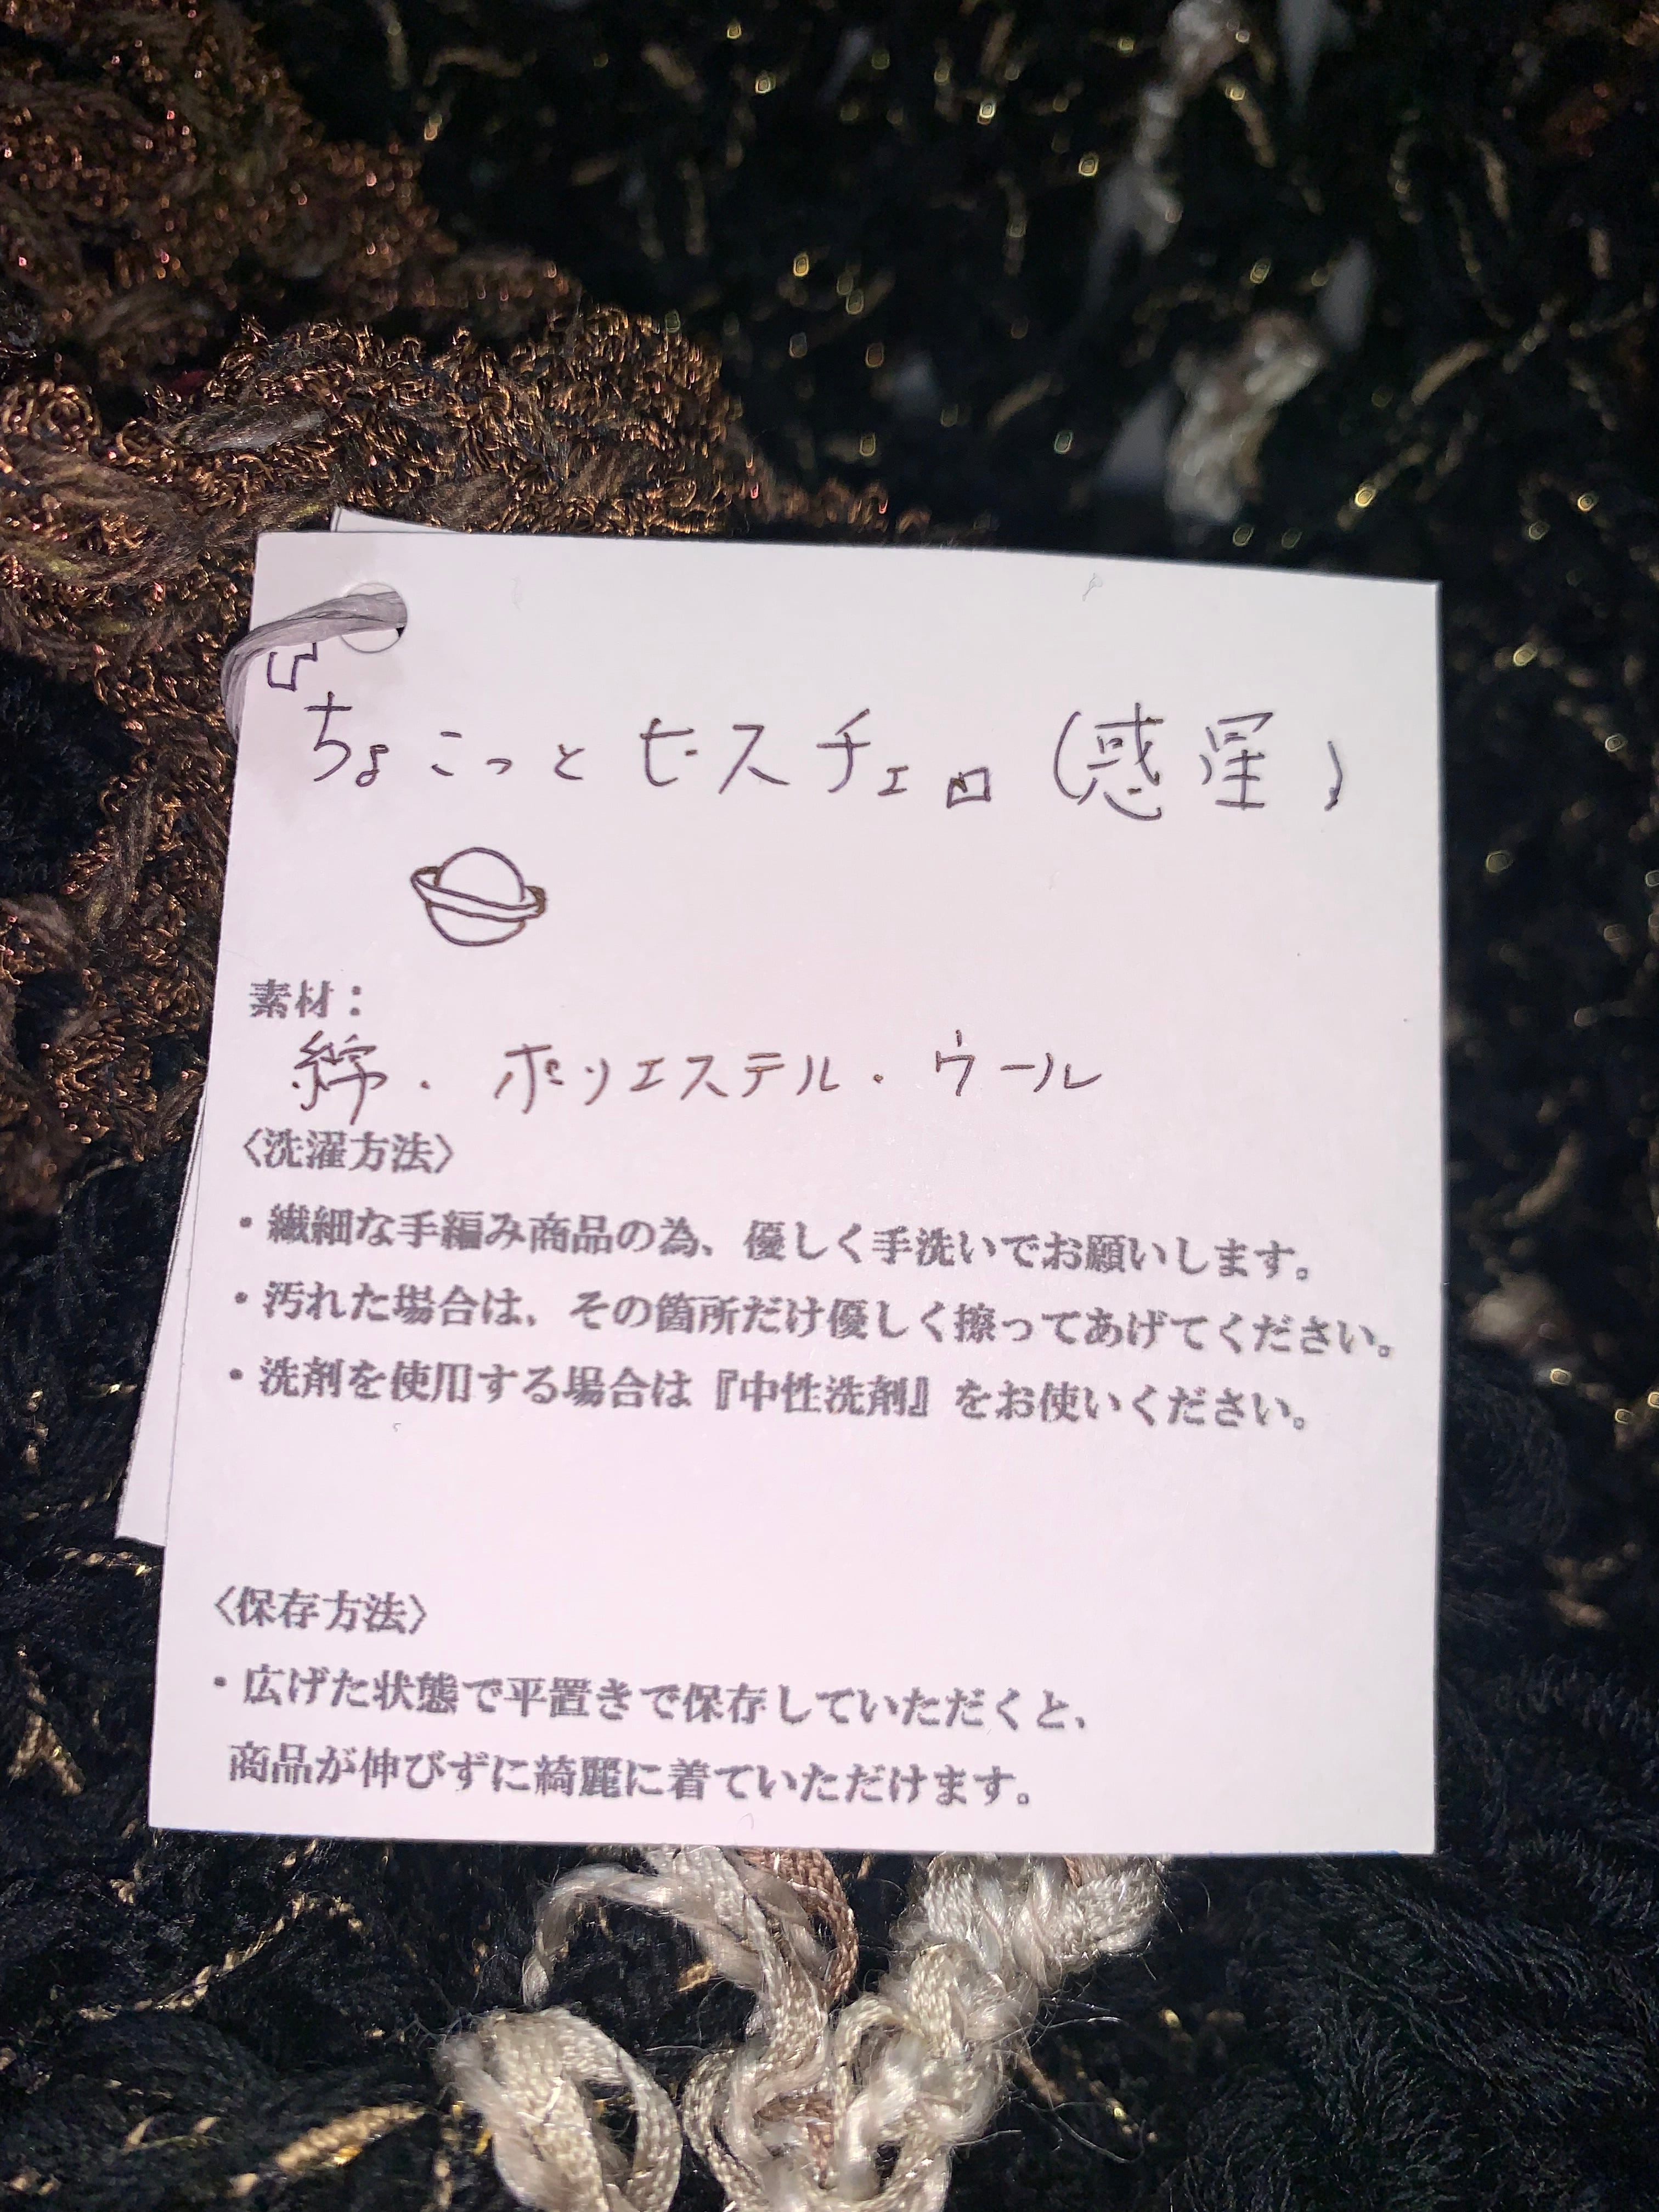 『ちょこっとビスチェ』(惑星)
素材：
綿・ポリエステル・ウール
〈洗濯方法〉
・繊細な手編み商品の為、優しく手洗いでお願いします。
・汚れた場合は、その箇所だけ優しく擦ってあげてください。
・洗剤を使用する場合は『中性洗剤』をお使いください。
〈保存方法〉
・広げた状態で平置きで保存していただくと、
商品が伸びずに綺麗に着ていただけます。